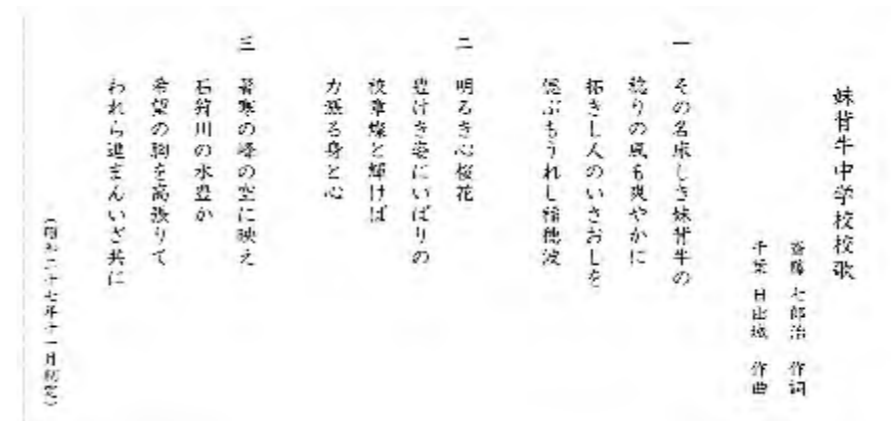 妹背牛中学校校歌
斎藤 七郎治 作詞
千葉 日出城 作曲
一 その名床しき妹背牛の
稔りの風も爽やかに
拓きし人のいさおしを
偲ぶもうれし稲穂波
二 明るき心桜花
豊けき姿にいばりの
校章燦と輝けば
力漲る身と心
三 暑寒の峰の空に映え
石狩川の水豊か
希望の胸を高張りて
われら進まんいざ共に
(昭和二十七年十一月制定)